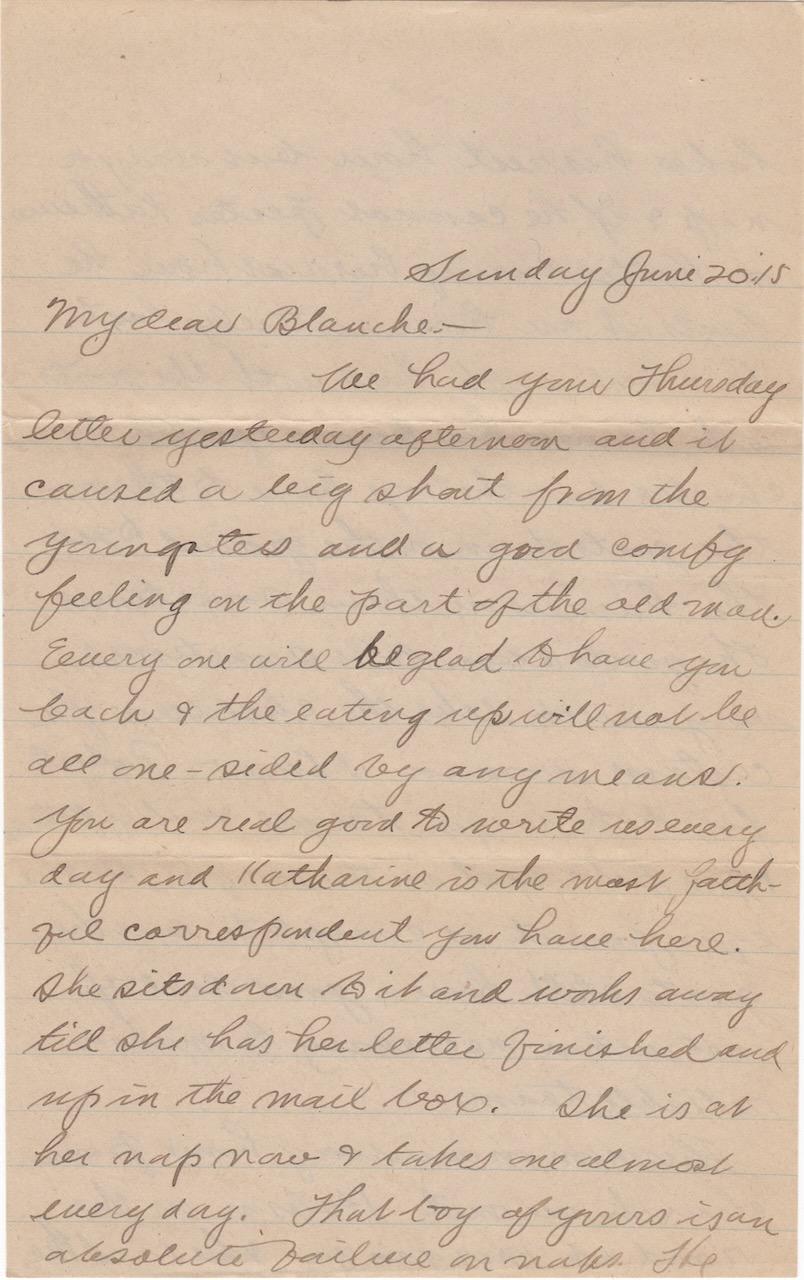 Sunday June 20.15
My dear Blanche:—
We had your Thursday
letter yesterday afternoon and it
caused a big shout from the
youngsters and a good comfy
feeling on the part of the old man.
Every one will be glad to have you
back & the eating up will not be
all one-sided by any means.
You are real good to write us every
day and Katharine is the most faith-
ful correspondent you have here.
She sits down to it and works away
till she has her letter finished and
up in the mail box. She is at
her nap now & takes one almost
every day. That boy of yours is an
absolute failure on naps. He